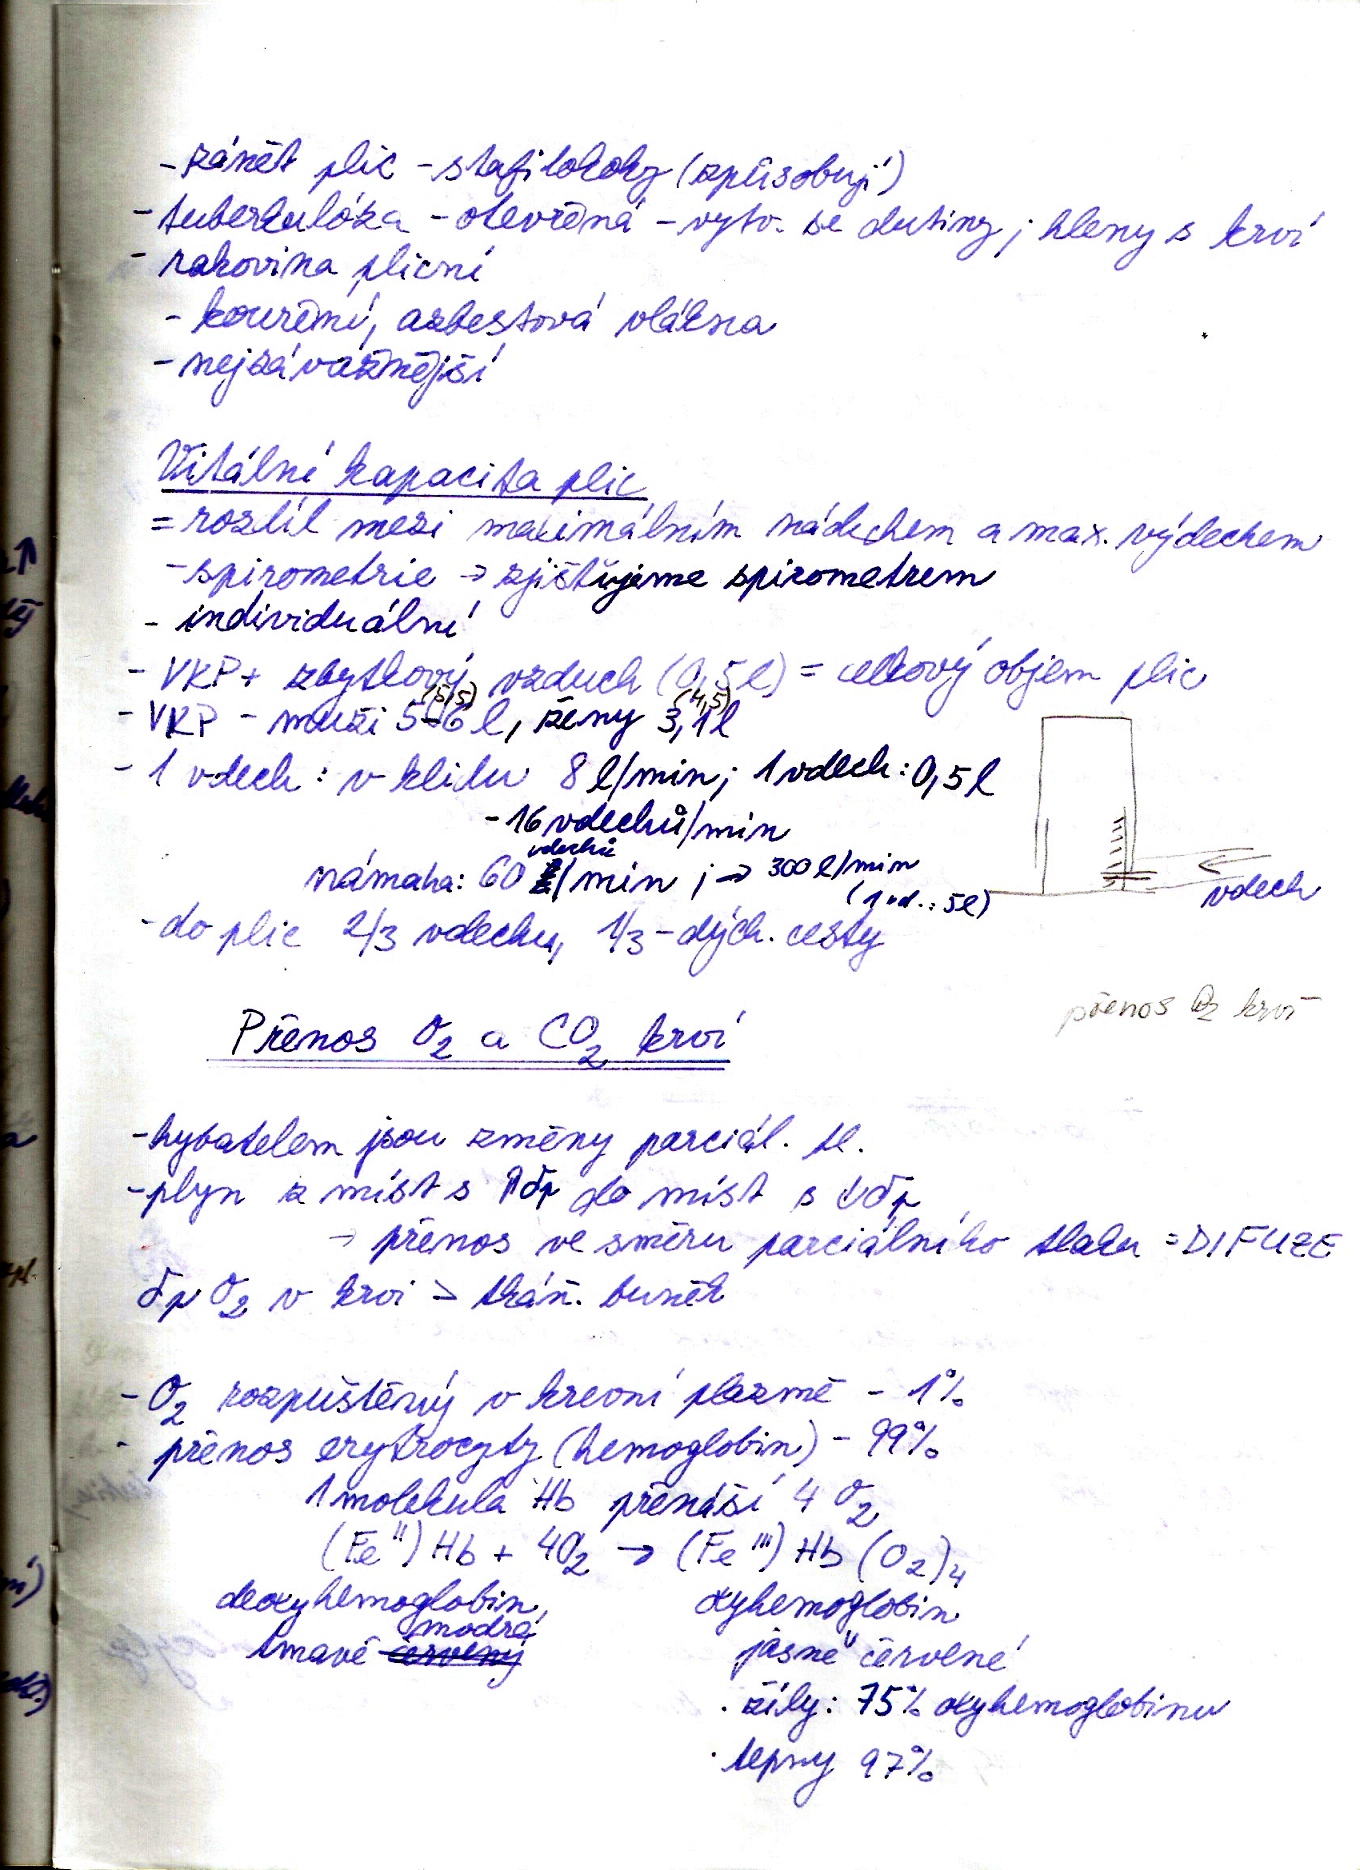 - zánět plic - stafilokoky (způsobují)
- tuberkulóza - otevřená - vytv. se dutiny; hleny s krví
- rakovina plicní
- kouření, azbestová vlákna
- nejzávažnější
Vitální kapacita plic
= rozdíl mezi maximálním nádechem a max. výdechem
- spirometrie → zjišťujeme spirometrem
- individuální
- VKP + zbytkový vzduch (0,5l) = celkový objem plic
(5,5) (4,5)
- VKP - muži 5-6 l, ženy 3,1l
- 1 vdech: v klidu 8 l/min; 1 vdech: 0,5l
- 16 vdechů/min
vdechů
námaha: 60 /min ; → 300 l/min
(1 vd.: 5l)
vdech
- do plic 2/3 vdechu, 1/3 - dých. cesty
přenos O2 krví
Přenos O2 a CO2 krví
- hybatelem jsou změny parciál. tl.
- plyn z míst s ↑ do míst s ↓
→ přenos ve směru parciálního tlaku = DIFUZE
O2 v krvi > tkáň. buněk
- O2 rozpuštěný v krevní plazmě - 1%
- přenos erytrocyty (hemoglobin) - 99%
1 molekula Hb přenáší 4 O2
(Fe II) Hb + 4O2 → (Fe III) Hb (O2)4
deoxyhemoglobin, oxyhemoglobin
modrá
tmavě červený jasně červené
. žíly: 75% oxyhemoglobinu
. tepny 97%